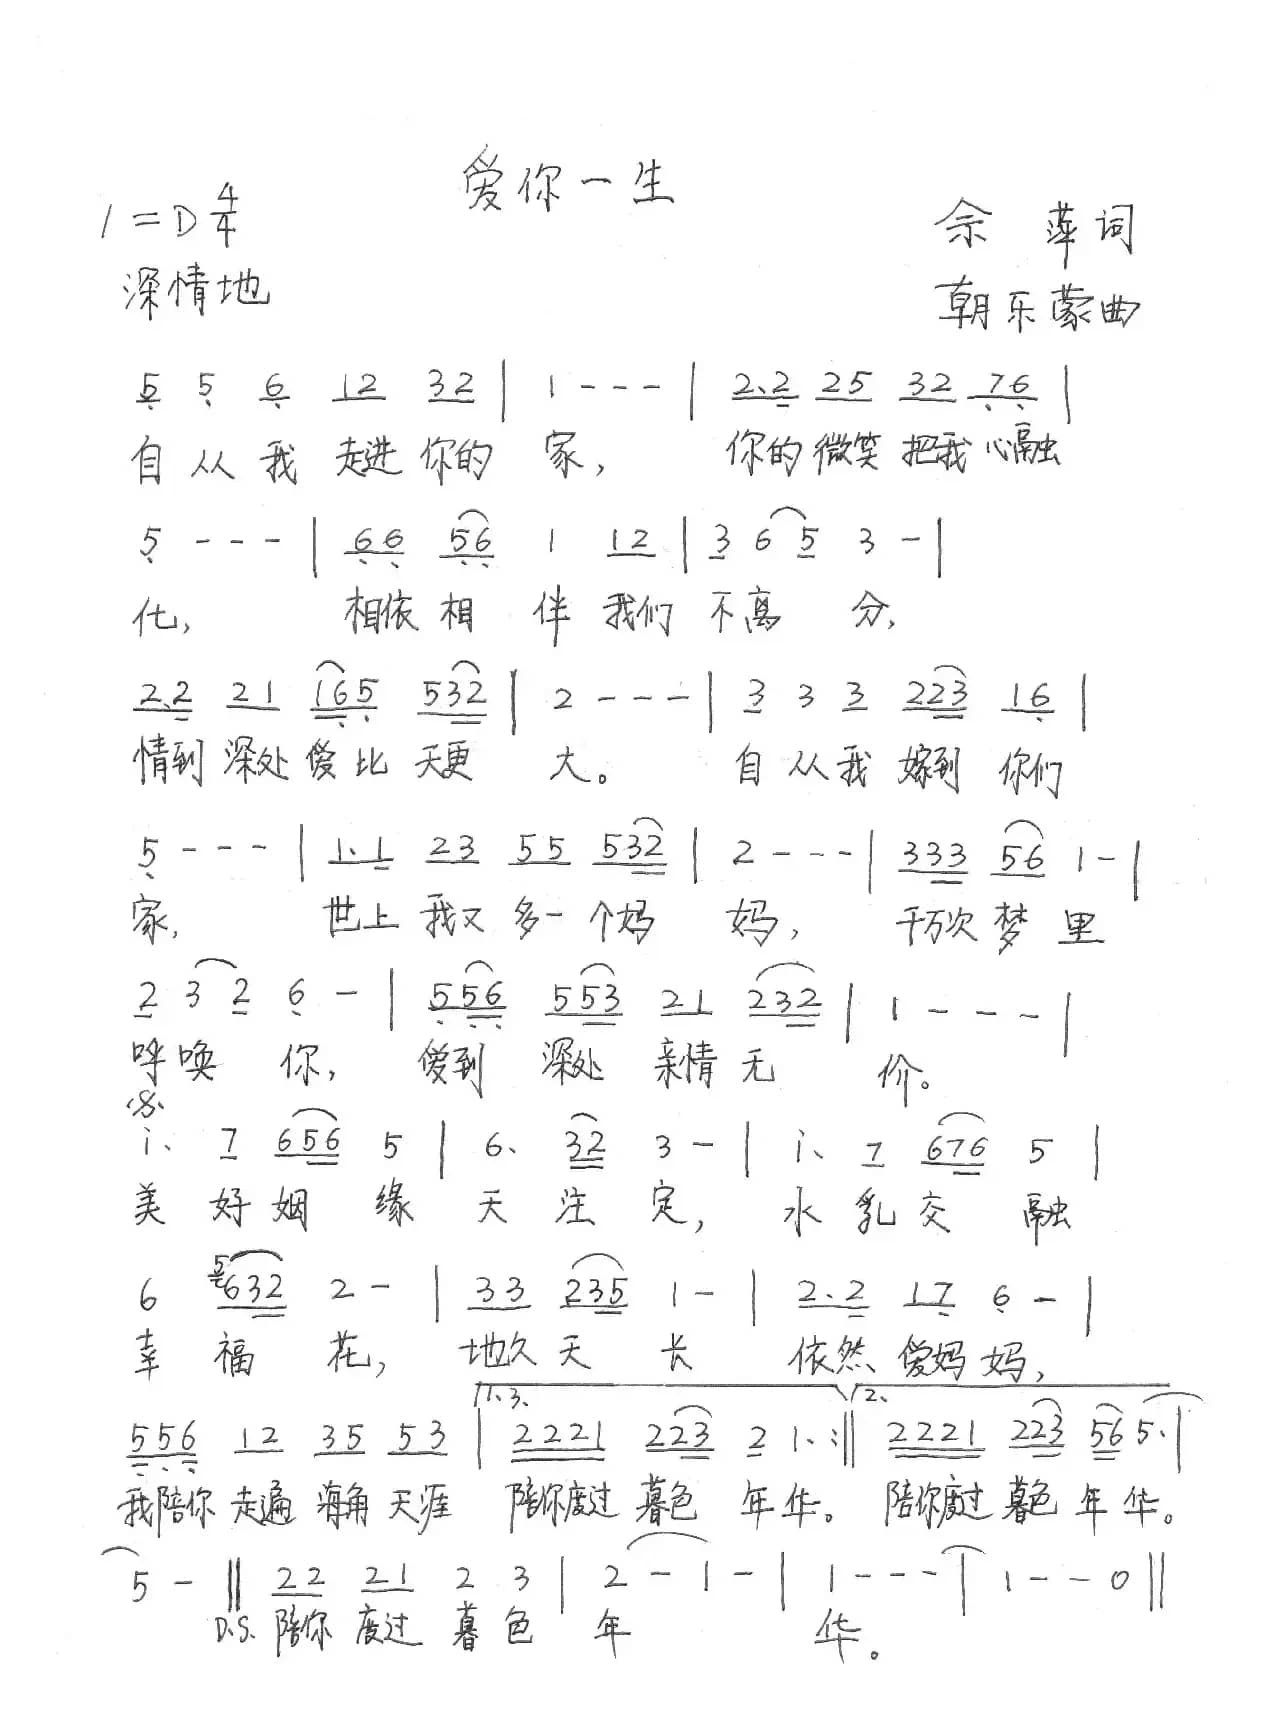 爱你一生
1=D 4/4
余 萍词
深情地
朝乐蒙曲
5 5 6 12 32 | 1 - - - | 2.2 25 32 76 |
自从我走进你的家, 你的微笑把我心融
5 - - - | 66 56 1 12 | 3 6 5 3 - |
化, 相依相伴我们不离分,
2.2 21 165 532 | 2 - - - | 3 3 3 223 16 |
情到深处爱比天更大。 自从我嫁到你们
5 - - - | 1.1 23 55 532 | 2 - - - | 333 56 1 - |
家, 世上我又多一个妈妈, 千万次梦里
2 3 2 6 - | 556 553 21 232 | 1 - - - |
呼唤你, 爱到深处亲情无价。
i. 7 656 5 | 6. 32 3 - | i. 7 676 5 |
美好姻缘天注定, 水乳交融
6 5632 2 - | 33 235 1 - | 2.2 17 6 - |
幸福花, 地久天长依然爱妈妈,
1.3. 2.
556 12 35 53 | 2221 223 2 1. :|| 2221 223 56 5. |
我陪你走遍海角天涯 陪你度过暮色年华。 陪你度过暮色年华。
5 - || 22 21 2 3 | 2 - 1 - | 1 - - - | 1 - - 0 ||
D.S. 陪你度过暮色年华。